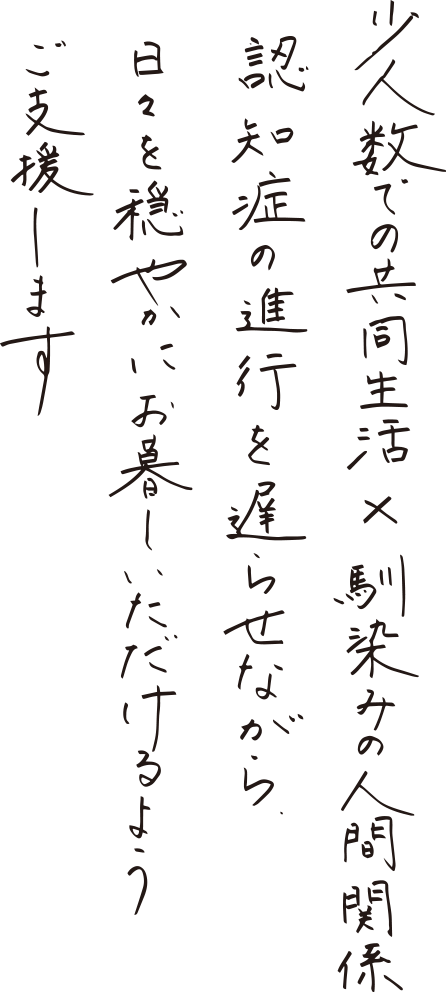 少人数での共同生活×馴染みの人間関係
認知症の進行を遅らせながら、
日々を穏やかにお暮しいただけるよう
ご支援します